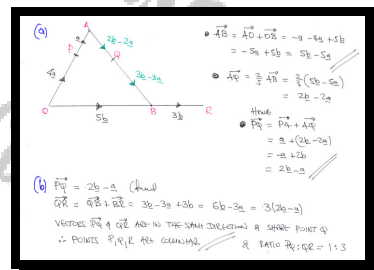 (a)
A
a
2b-2a
P
Q
4a
3b-3a
O
5b
B
3b
R
• AB = AO + OB = -a -4a + 5b
= -5a + 5b = 5b - 5a
• AQ = 2/5 AB = 2/5 (5b - 5a)
= 2b - 2a
HENCE
• PQ = PA + AQ
= a + (2b - 2a)
= -a + 2b
= 2b - a
(b) PQ = 2b - a (found)
QR = QB + BR = 3b - 3a + 3b = 6b - 3a = 3(2b - a)
VECTORS PQ & QR ARE IN THE SAME DIRECTION & SHARE POINT Q
∴ POINTS P, Q, R ARE COLLINEAR & RATIO PQ : QR = 1 : 3